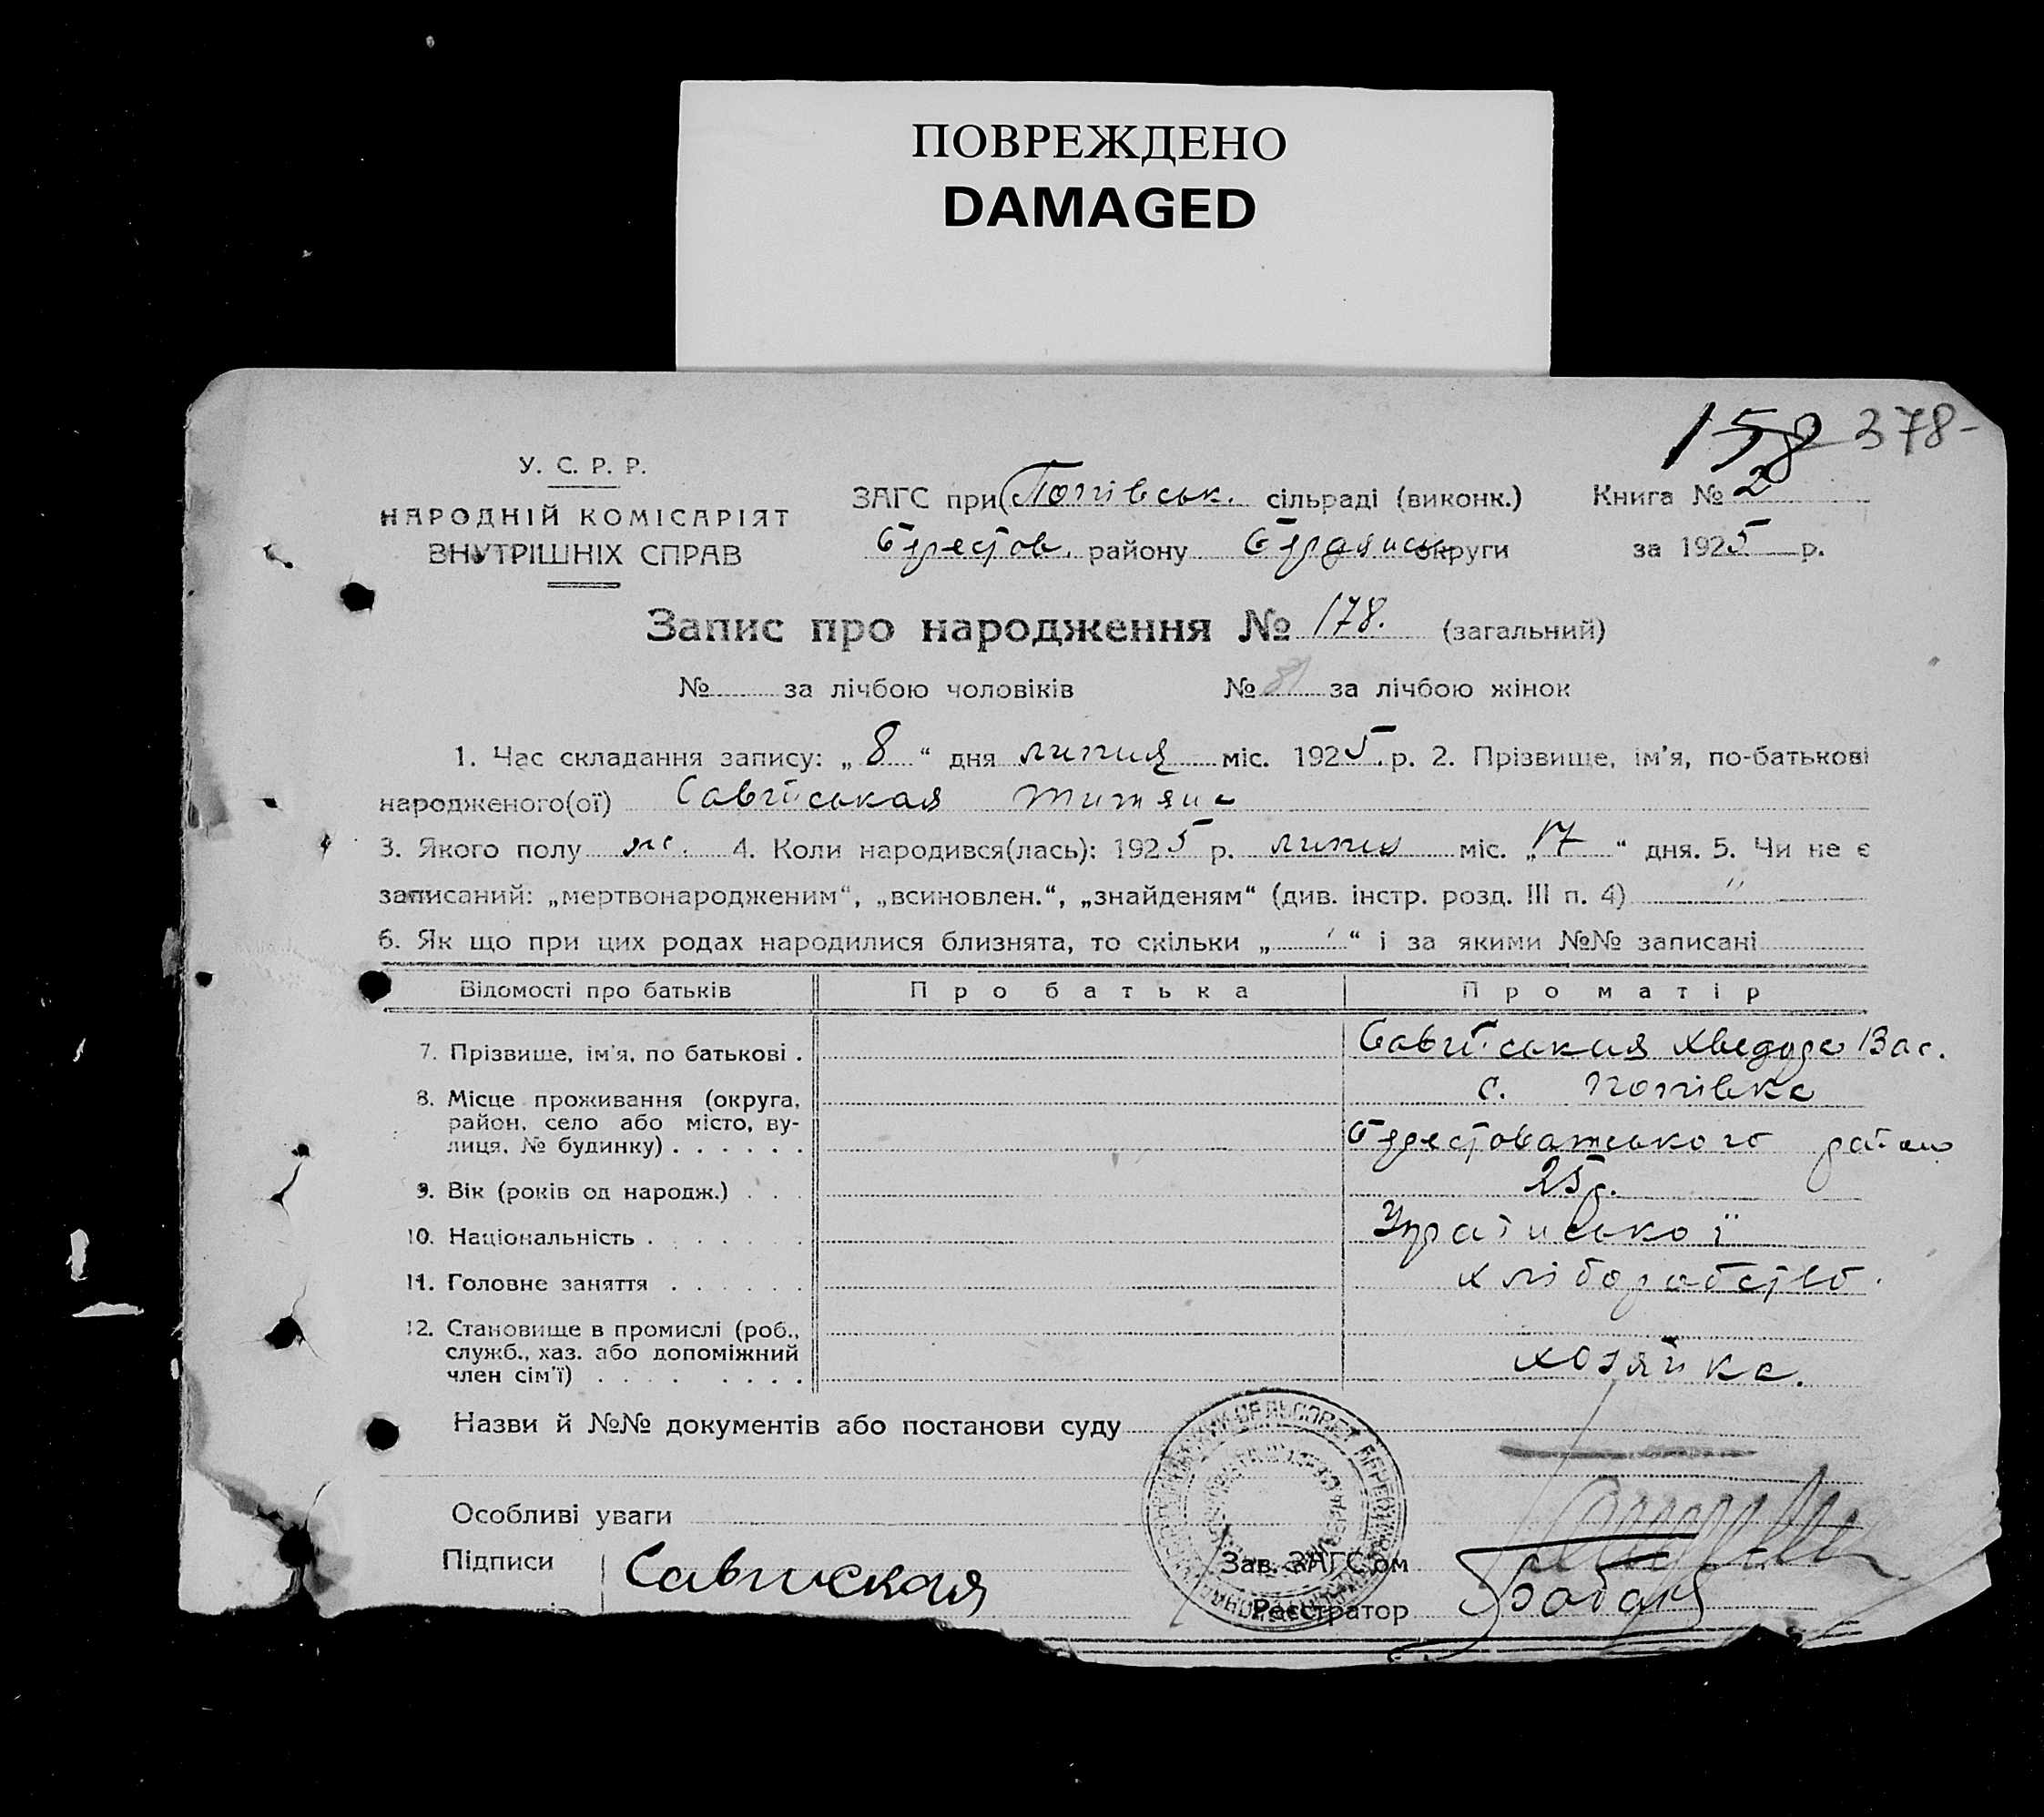 ПОВРЕЖДЕНО
DAMAGED
158 378-
У. С. Р. Р.
НАРОДНІЙ КОМІСАРІЯТ
ВНУТРІШНІХ СПРАВ
ЗАГС при Попівськ. сільраді (виконк.) Книга № 2
Берестов. району Бердянськ округи за 1925 р.
Запис про народження № 178. (загальний)
№ за лічбою чоловіків № 81 за лічбою жінок
1. Час складання запису: „8“ дня липня міс. 1925 р. 2. Прізвище, ім'я, по-батькові
народженого(ої) Савійськая Титяна
3. Якого полу ж. 4. Коли народився(лась): 1925 р. липня міс. „17“ дня. 5. Чи не є
записаний: „мертвонародженим“, „всиновлен.“, „знайденям“ (див. інстр. розд. III п. 4) "
6. Як що при цих родах народилися близнята, то скільки „ “ і за якими №№ записані
Відомості про батьків Про батька Про матір
7. Прізвище, ім'я, по батькові . Савійськая Хведора Вас.
8. Місце проживання (округа, с. Попівка
район, село або місто, ву-
лиця, № будинку) . . . . . . Берестоватського району
9. Вік (років од народж.) . . . 25 р.
10. Національність . . . . . . . Української
11. Головне заняття . . . . . . хліборобство.
12. Становище в промислі (роб.,
служб., хаз. або допоміжний
член сім'ї) . . . . . . . . хозяйка.
Назви й №№ документів або постанови суду
Особливі уваги
Підписи Зав. ЗАГС'ом
Реєстратор